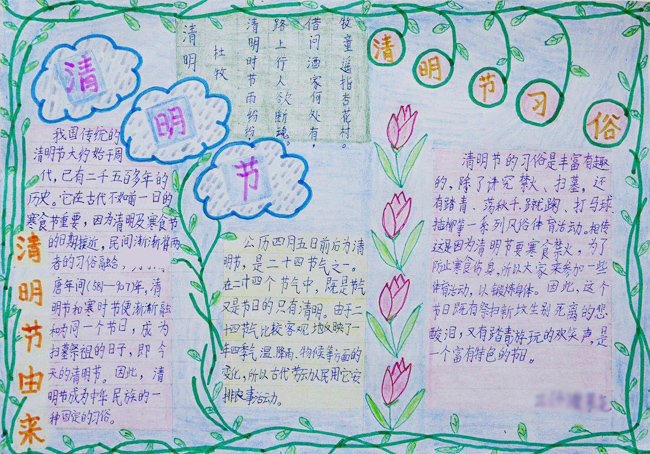 清明节
清明
杜牧
清明时节雨纷纷，
路上行人欲断魂。
借问酒家何处有，
牧童遥指杏花村。
清明节习俗
清明节由来
我国传统的
清明节大约始于周
代，已有二千五百多年的
历史。它在古代不如前一日的
寒食节重要，因为清明及寒食节
的日期接近，民间渐渐将两
者的习俗融合，
唐年间(581—907年，清
明节和寒时节便渐渐融
和为同一个节日，成为
扫墓祭祖的日子，即今
天的清明节。因此，清
明节成为中华民族的一
种固定的习俗。
公历四月五日前后为清
明节，是二十四节气之一。
在二十四个节气中，既是节气
又是节日的只有清明。由于二
十四节气比较客观地反映了一
年四季气温、降雨、物候等方面的
变化，所以古代劳动人民用它安
排农事活动。
清明节的习俗是丰富有趣
的，除了讲究禁火、扫墓，还
有踏青、荡秋千、蹴鞠、打马球、
插柳等一系列风俗体育活动。相传
这是因为清明节要寒食禁火，为了
防止寒食伤身，所以大家来参加一些
体育活动，以锻炼身体。因此，这个
节日既有祭扫新坟生别死离的悲
酸泪，又有踏青游玩的欢笑声，是
一个富有特色的节日。